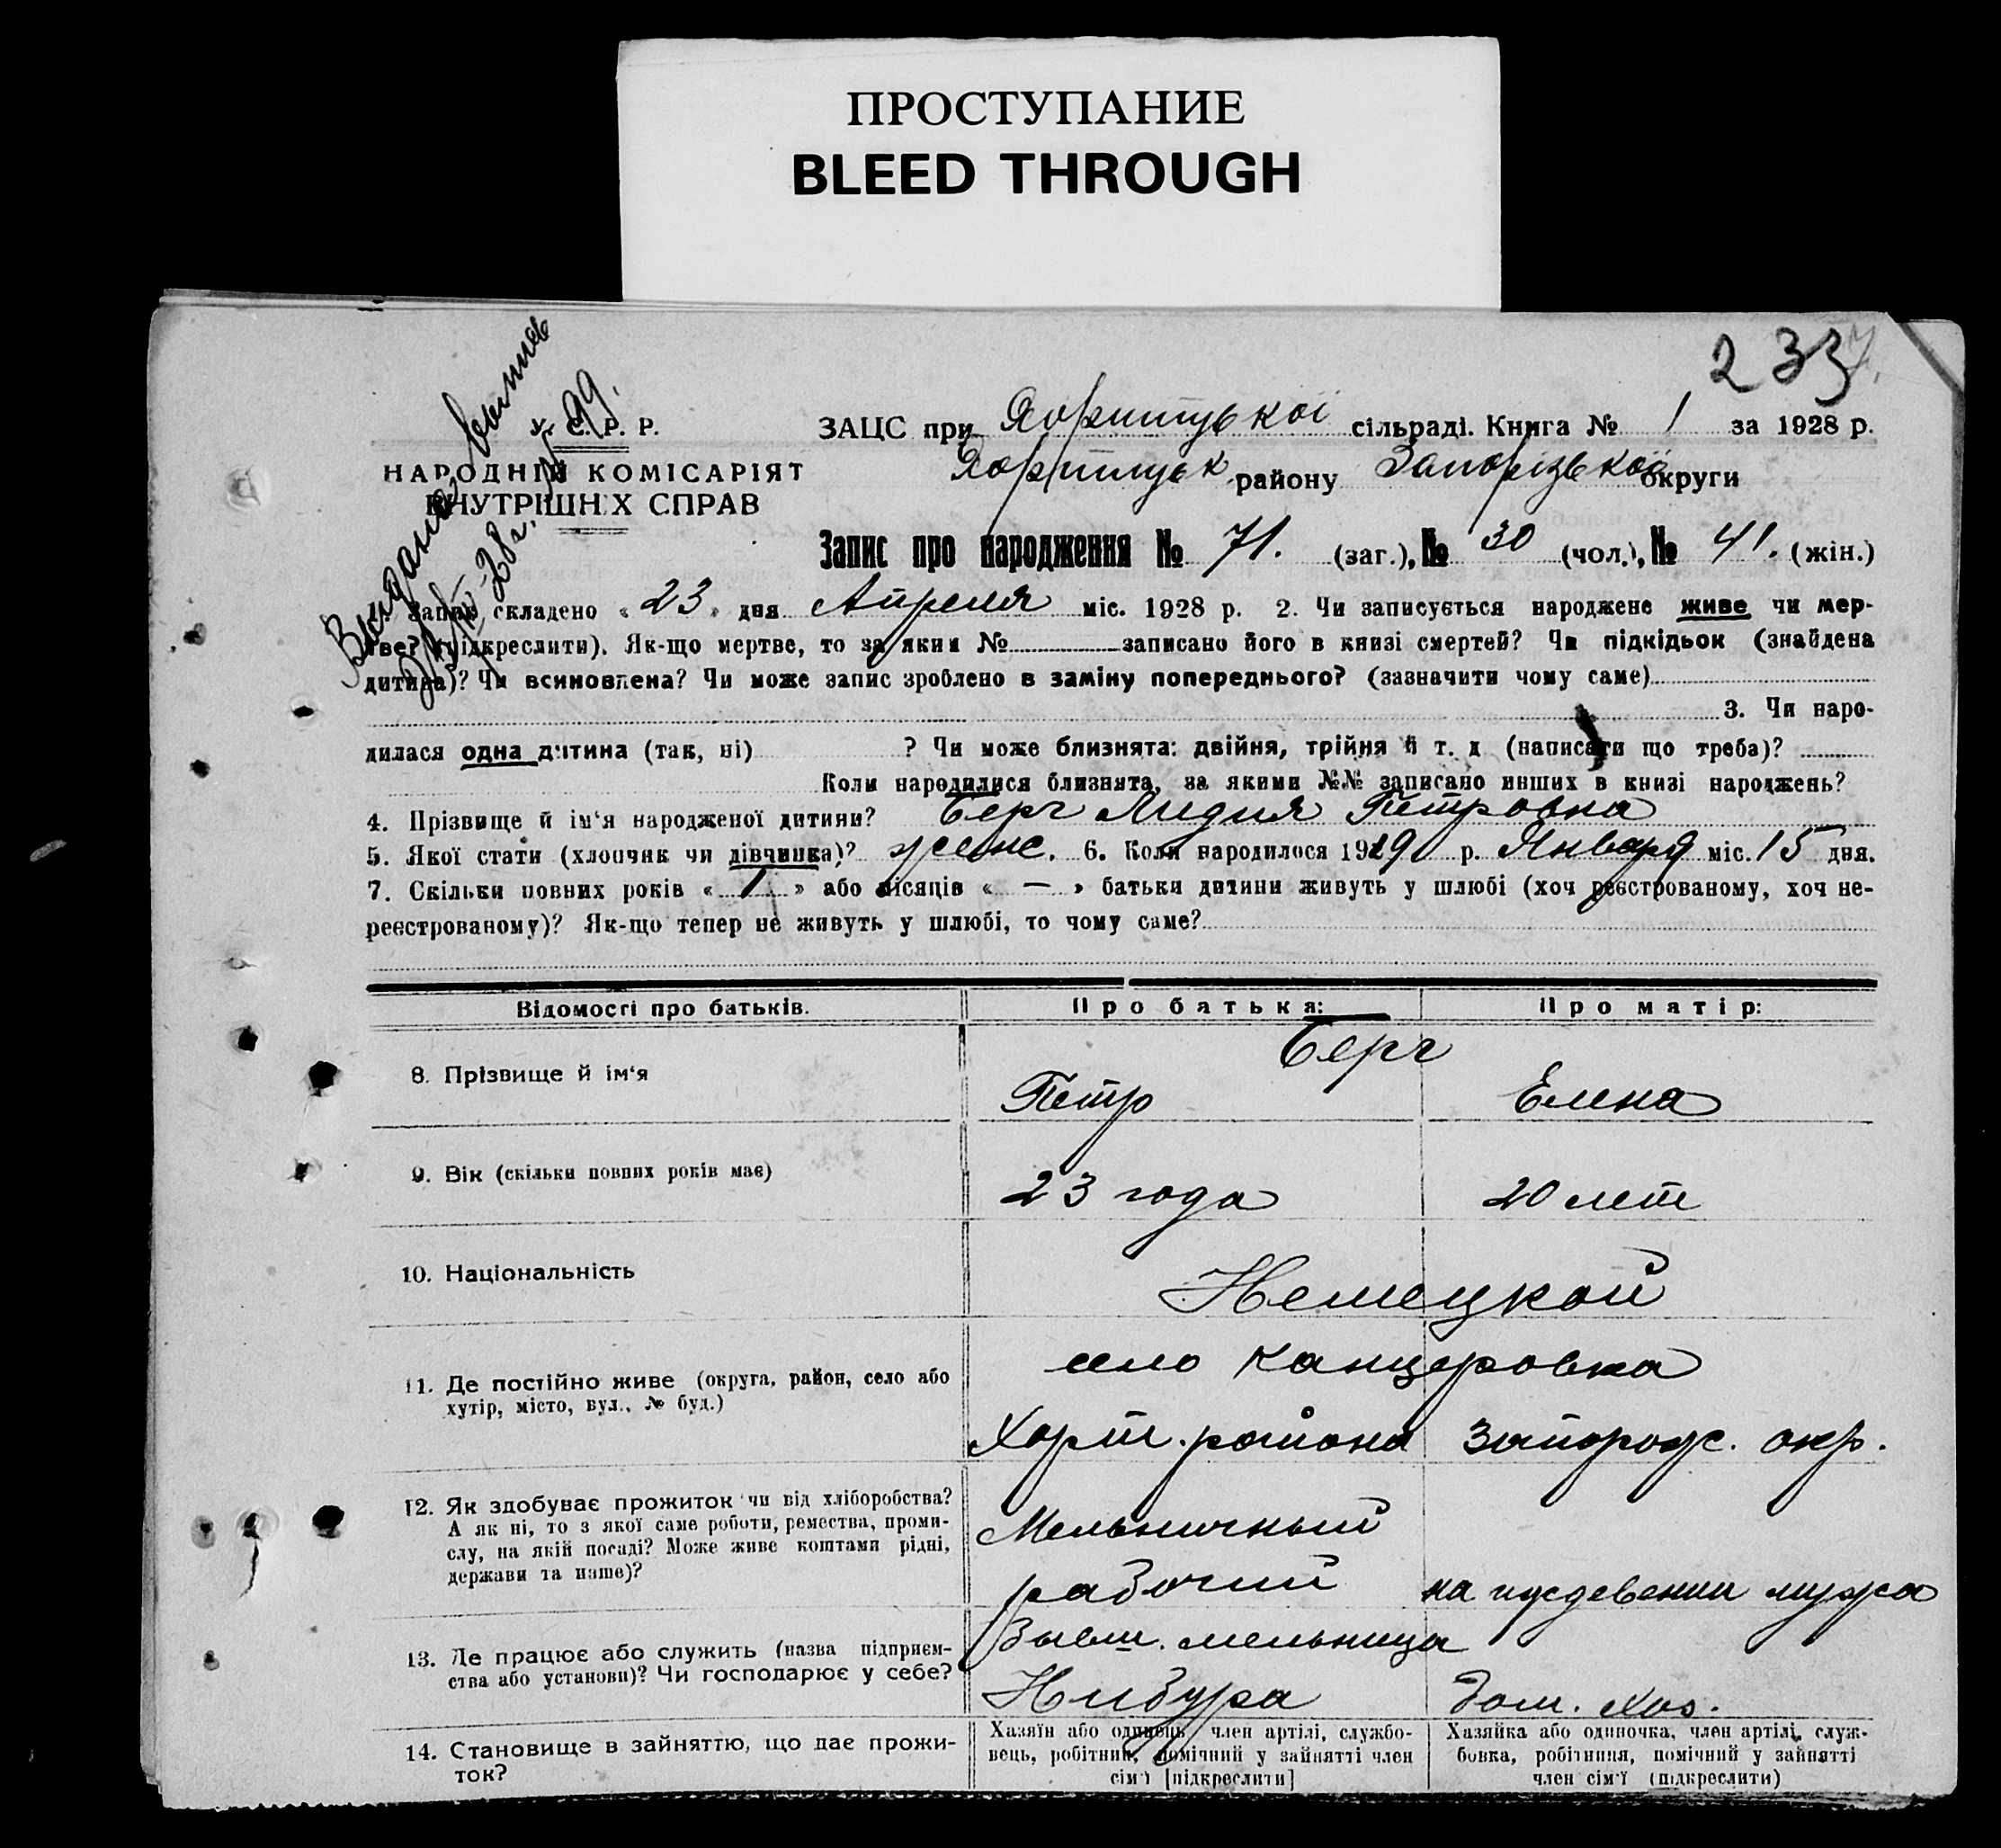 ПРОСТУПАНИЕ
BLEED THROUGH
2337.
У. С. Р. Р.
НАРОДНІЙ КОМІСАРІЯТ
ВНУТРІШНІХ СПРАВ
ЗАЦС при Хортицької сільраді. Книга № 1 за 1928 р.
Хортицьк району Запорізької округи
Запис про народження № 71. (заг.), № 30 (чол.), № 41. (жін.)
Запис складено « 23 » дня Апреля міс. 1928 р. 2. Чи записується народжене живе чи мер-
тве? (підкреслити). Як-що мертве, то за яким № записано його в книзі смертей? Чи підкідьок (знайдена
дитина)? Чи всиновлена? Чи може запис зроблено в заміну попереднього? (зазначити чому саме)
3. Чи наро-
дилася одна дитина (так, ні) ? Чи може близнята: двійня, трійня й т. д (написати що треба)?
Коли народилися близнята, за якими №№ записано инших в книзі народжень?
4. Прізвище й ім'я народженої дитини? Берг Лидия Петровна
5. Якої стати (хлопчик чи дівчинка)? женс. 6. Коли народилося 19 р. Января міс. 15 дня.
7. Скільки повних років « 1 » або місяців « — » батьки дитини живуть у шлюбі (хоч реєстрованому, хоч не-
реєстрованому)? Як-що тепер не живуть у шлюбі, то чому саме?
Відомості про батьків. Про батька: Про матір:
Берг
8. Прізвище й ім'я Петр Елена
9. Вік (скільки повних років має) 23 года 20 лет
10. Національність Немецкой
село Канцеровка
11. Де постійно живе (округа, район, село або
хутір, місто, вул., № буд.)
Хорт. района Запорож. окр.
12. Як здобуває прожиток чи від хліборобства?
А як ні, то з якої саме роботи, ремества, проми-
слу, на якій посаді? Може живе коштами рідні,
держави та инше)?
Мельничный
рабочий на иждевении мужа
13. Де працює або служить (назва підприєм-
ства або установи)? Чи господарює у себе?
Бывш. мельница
Нибура дом. хоз.
14. Становище в зайняттю, що дає прожи-
ток?
Хазяїн або одинець, член артілі, службо-
вець, робітник, помічний у зайнятті член
сім'ї [підкреслити]
Хазяйка або одиночка, член артілі, служ-
бовка, робітниця, помічний у зайнятті
член сім'ї (підкреслити)